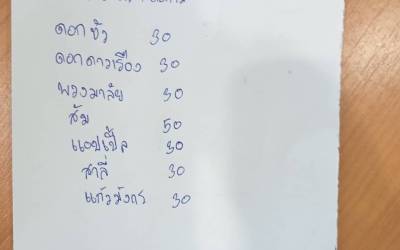 ดอกบัว 30
ดอกดาวเรือง 30
พวงมาลัย 30
ส้ม 50
แอปเปิ้ล 30
สาลี่ 30
แก้วมังกร 30